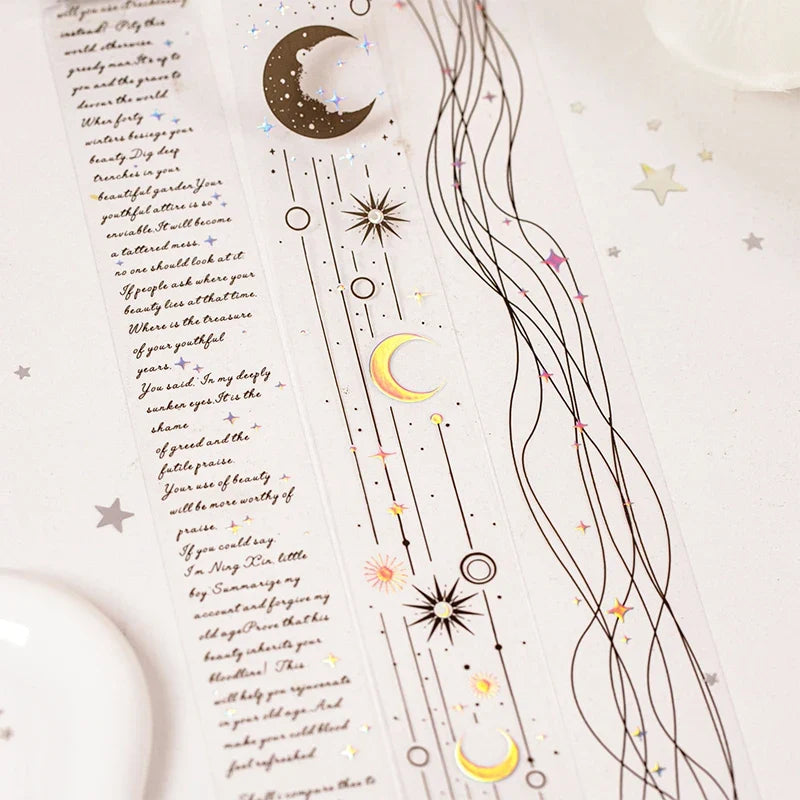 will you use. Freckleening
instead?-Pity this
world.otherwise.
greedy man.It's up to
you and the grave to
devour the world
When forty
winters besiege your
beauty.Dig deep
trenches in your
beautiful garden.Your
youthful attire is so
enviable.It will become
a tattered mess.
no one should look at it.
If people ask where your
beauty lies at that time.
Where is the treasure
of your youthful
years.
You said. In my deeply
sunken eyes.It is the
shame
of greed and the
futile praise.
Your use of beauty
will be more worthy of
praise.
If you could say.
I'm Ning Xin, little
boy.Summarize my
account and forgive my
old age.Prove that his
beauty inherits your
bloodline! This
will help you rejuvenate
in your old age.And
make your cold blood
feel refreshed.
compare thee to